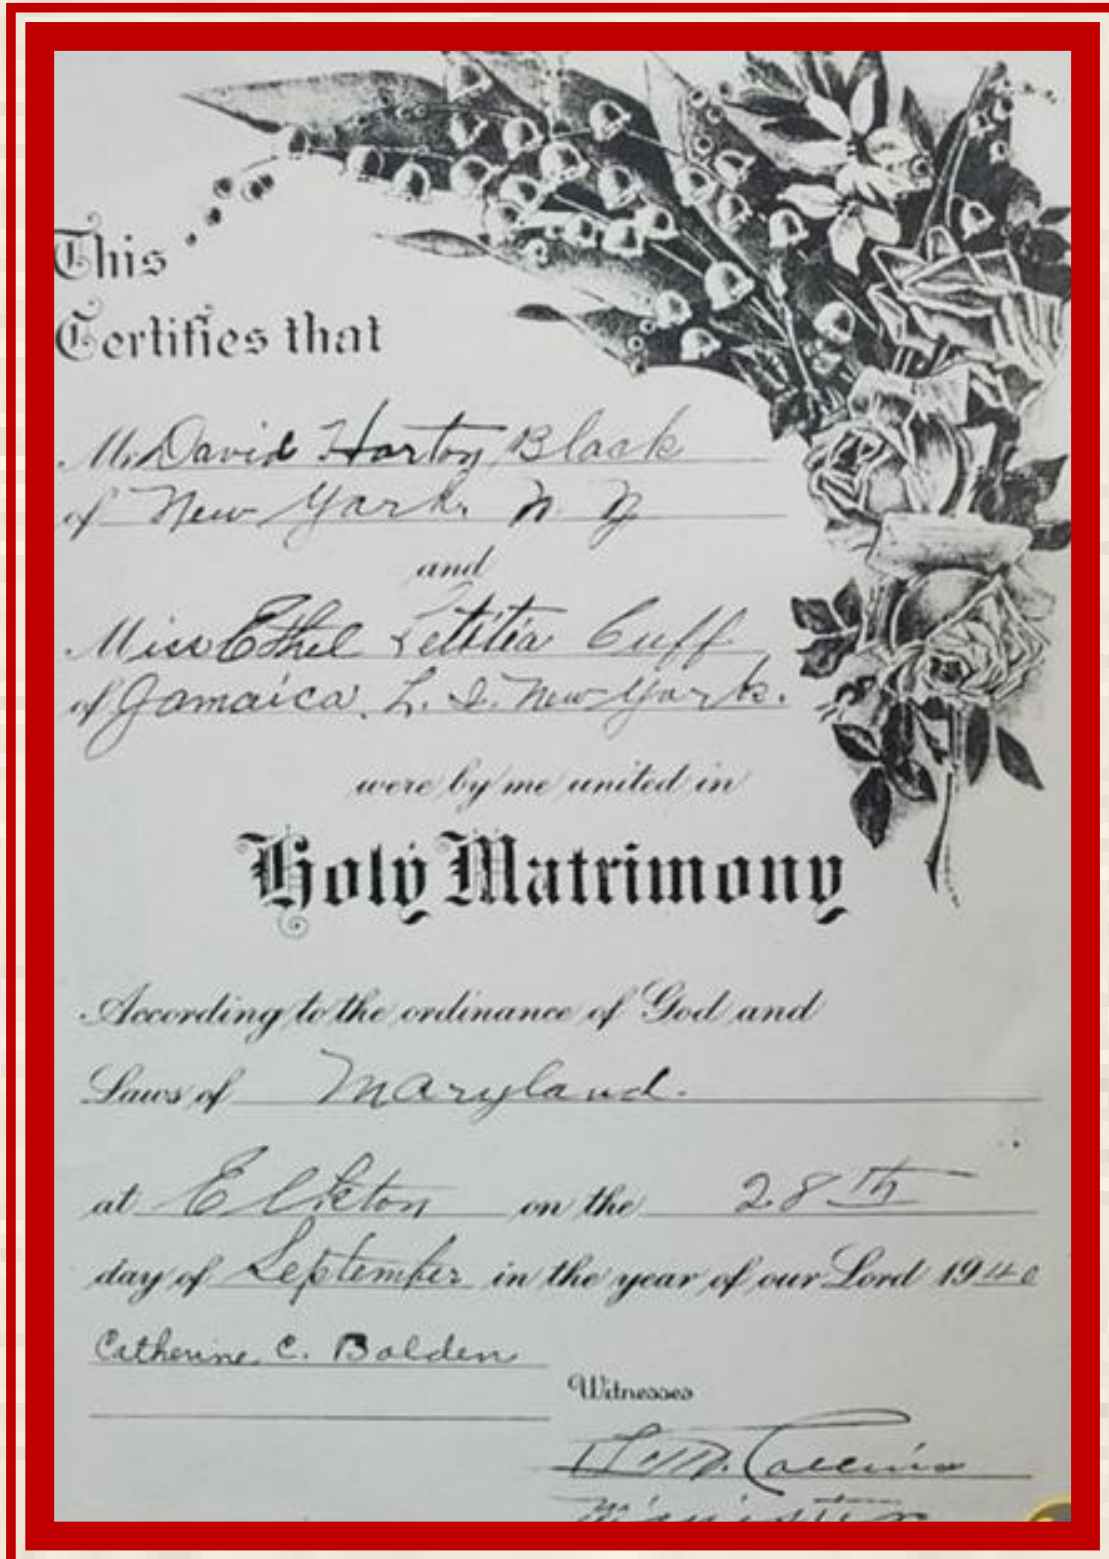 This
Certifies that
Mr. David Horton Black
of New York. N. Y
and
Miss Ethel Letitia Cuff
of Jamaica. L. I. New York.
were by me united in
Holy Matrimony
According to the ordinance of God and
Laws of Maryland.
at Elkton on the 28th
day of September in the year of our Lord 1940
Catherine C. Bolden
Witnesses
Collins
Minister